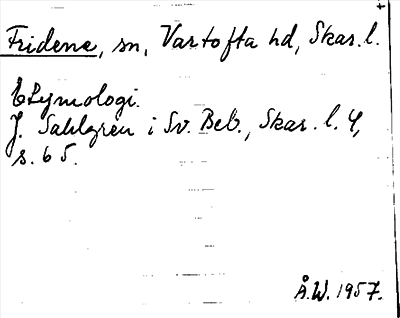 Fridene, sn, Vartofta hd, Skar. l.
Etymologi.
J. Sahlgren i Sv. Beb., Skar. l. 4,
s. 65.
Å.W. 1957.